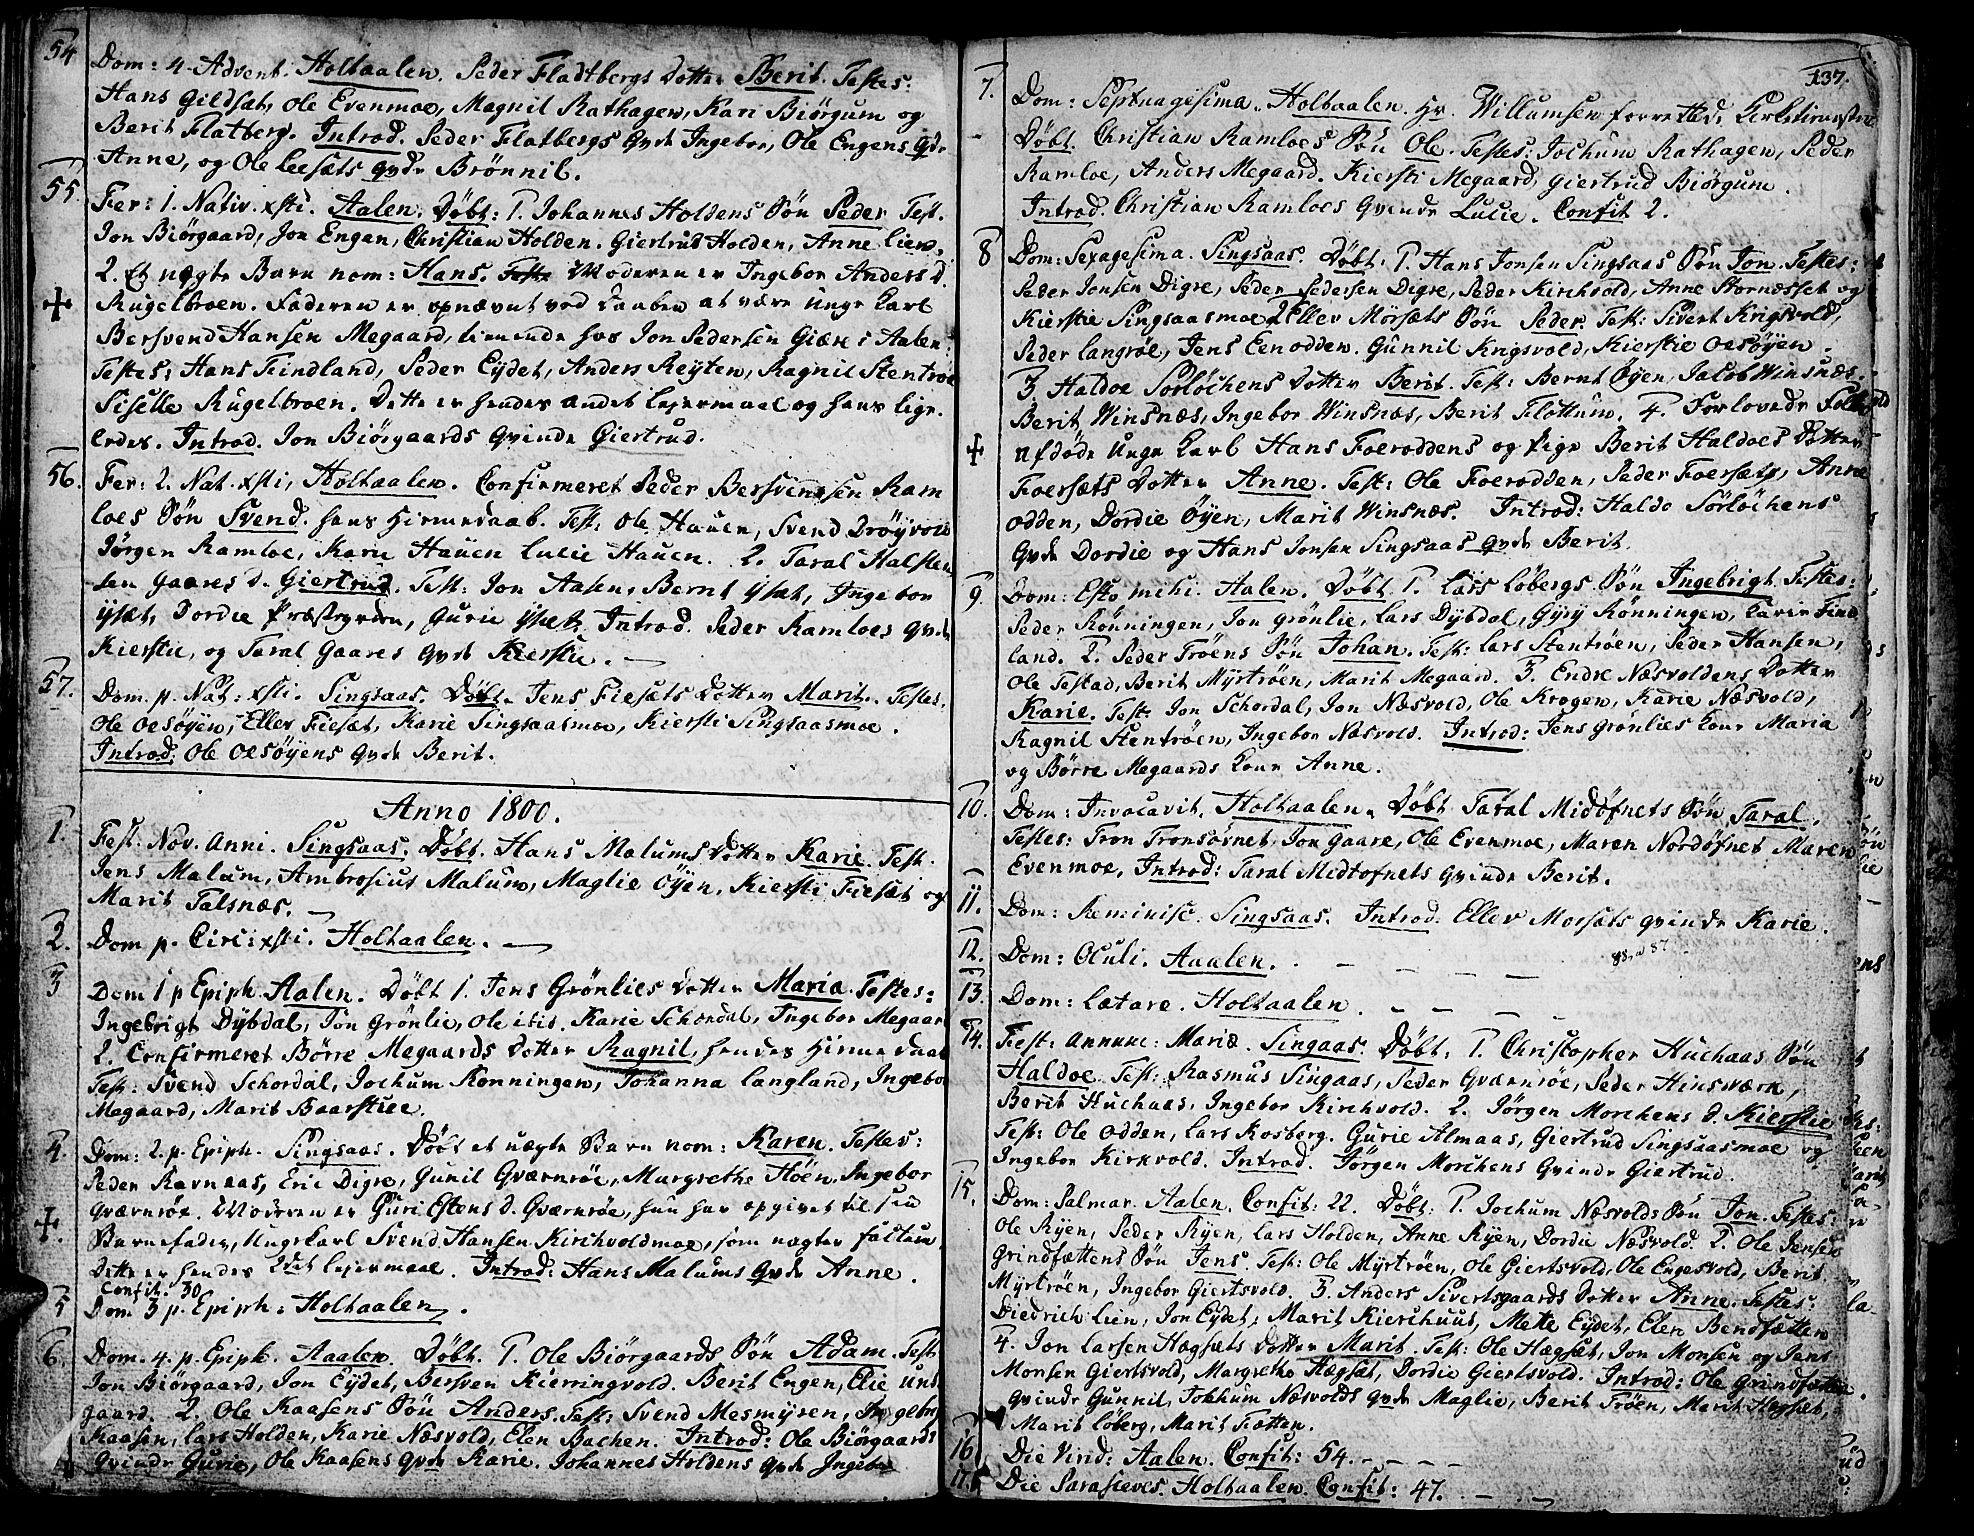 54 Dom: 4 Advent. Holtaalen. Peder Fladtbergs Dotter Berit. Testes:
Hans Gildsæt, Ole Evenmoe, Magnil Rathagen, Kari Biörgum og
Berit Flatberg. Introd. Peder Flatbergs Qvde Ingebor, Ole Engens Qvd.
Anne, og Ole Leesæts qvde Brönnil.
55. Fer: 1. Nativ. xsti. Aalen. Döbt: 1. Johannes Holdens Sön Peder Test.
Jon Biörgaard, Jon Engen, Christian Holden. Giertrud Holden, Anne Lien.
2. Et uægte Barn nom: Hans. Moderen er Ingebor Anders D.
Kugelbroen. Faderen er opnævnt ved Daaben at være Unge Karl
Bersvend Hansen Megaard, tienende hos Jon Pedersen Giære i Aalen
Testes: Hans Findland, Peder Eydet, Anders Reyten, Ragnil Stentroe
Siselle Kugelbroen. Dette er hendes andet Lejermaal og hans lige-
ledes. Introd. Jon Biörgaards Qvinde Giertrud.
56. Fer: 2. Nat. xsti, Holtaalen. Confirmeret Peder Bersvendsen Ram
loes Sön Svend. hans Hiemedaab. Test: Ole Hauen, Svend Dröyvold
Jörgen Ramloe, Karie Hauen Lucie Hauen. 2. Taral Halsten
sen Gaares D. Giertrud. Test: Jon Aasen, Bernt Ysæt, Ingebor
Ysæt, Dordie Præstgrden, Gurie Ysæt. Introd. Peder Ramloes Qvde
Kierstie, og Taral Gaares Qvde Kierstie.
57. Dom. p. Nat: xsti. Singsaas. Döbt. Jens Fiesæts Dotter Marit. Testes.
Ole Oesöyen, Ellev Fiesæt, Karie Singsaasmoe, Kiersti Singsaasmoe.
Introd: Ole Oesöyens Qvde Berit.
Anno 1800.
1. Fest. Nov. Anni. Singsaas. Döbt. Hans Malums Dotter Karie. Test.
Jens Malum, Ambrosius Malum, Maglie Öyen, Kiersti Fiesæt og
Marit Talsnæs.
2. Dom p. Circ: xsti. Holtaalen.
3 Dom 1 p Epiph. Aalen. Döbt 1. Jens Grönlies Dotter Maria. Testes:
Ingebrigt Dybdal, Jon Grönlie, Ole ibid. Karie Schordal, Ingebor Megaard
2. Confirmeret Börre Megaards Dotter Ragnil, hendes Hiemedaab
Test: Svend Schordal, Jochum Rönningen, Johanna Langland, Ingebor
Megaard, Marit Baarstiee.
4. Dom: 2. p. Epiph. Singsaas. Döbt et uægte Barn nom: Karen. Testes:
Peder Ravnaas, Eric Digre, Gunil Gværnröe, Margrethe Höen, Ingebor
Gværnröe. Moderen er Guri Estens D. Gværnröe, hun har opgivet til sin
Barnefader, Ungekarl Svend Hansen Kirchvoldmoe, som nægter factum
Dette er hendes 2det Lejermaal. Introd: Hans Malums Qvde Anne.
Confit. 30.
5 Dom 3 p. Epiph. Holtaalen.
6. Dom. 4. p. Epiph. Aaalen. Döbt. 1. Ole Biörgaards Sön Adam. Test:
Jon Biörgaard, Jon Eydet, Bersven Kierringvold. Berit Engen, Elie Und
gaard. 2. Ole Kaasens Sön Anders. Test: Svend Mesmyren, Ingebor
Kaasen, Lars Holden, Karie Næsvold, Elen Bachen. Introd: Ole Biörgaards
Qvinde Gurie, Ole Kaasens Qvde Karie. Johannes Holdens Qvde Ingebor
137.
7. Dom: Septuagesima. Holtaalen. Hr. Willumsen forrettede Kirketienesten
Döbt. Christian Ramloes Sön Ole. Testes: Jochum Rathagen, Peder
Ramloe, Anders Megaard. Kiersti Megaard, Giertrud Biörgum.
Introd. Christian Ramloes Qvinde Lucie. Confit 2.
8 Dom: Sexagesima. Singsaas. Döbt. 1. Hans Jonsen Singsaas Sön Jon. Testes:
Peder Jonsen Digre, Peder Pedersen Digre, Peder Kirchvold, Anne Stornæsset og
Kierstie Singsaasmoe 2 Ellev Mörsæts Sön Peder. Test: Sivert Krigsvold,
Peder Langröe, Jens Eenodden. Gunnil Krigsvold, Kierstie Oesöyen.
3. Haldoe Sörlöchens Dotter Berit. Test: Bernt Öyen, Jacob Winsnæs.
Berit Winsnæs, Ingebor Winsnæs, Berit Flottum. 4. Forlovede
afdöde Unge Karl Hans Foeroddens og Pige Berit Haldoes Dotter
Foersæts Dotter Anne. Test: Ole Foerodden, Peder Foersæts, Anne
odden, Dordie Öyen, Marit Winsnæs. Introd: Haldo Sörlöchens
Qvde Dordie og Hans Jonsen Singsaas Qvde Berit.
9 Dom: Esto mihi. Aalen. Döbt. 1. Lars Löbergs Sön Ingebrigt. Testes:
Peder Rönningen, Jon Grönlie, Lars Dybdal, Gyry Rönningen, Karen Find
land. 2. Peder Tröens Sön Johan. Test: Lars Stentröen, Peder Hansen,
Ole Testad, Berit Myrtröen, Marit Megaard. 3. Endre Næsvoldens Dotter
Karie. Test: Jon Schordal, Jon Næsvold, Ole Krogen, Karie Næsvold,
Ragnil Stentröen, Ingebor Næsvold. Introd: Jens Grönlies Kone Maria
og Börre Megaards Kone Anne.
10. Dom: Invocavit. Holtaalen. Döbt Taral Midöfnets Sön Taral.
Testes: Tron Tronsövnet, Jon Gaare, Ole Evenmoe, Maren Nordöfnet Maren
Evenmoe, Introd: Taral Midtofnets Qvinde Berit.
11. Dom: Reminisc. Singsaas. Introd. Ellev Morsæts Qvinde Karie.
12. Dom: Oculi. Aaalen.
13. Dom: Lætare. Holtaalen.
14. Fest: Annunc: Mariæ. Singaas. Döbt: 1. Christopher Huchaas Sön
Haldoe. Test: Rasmus Singaas, Peder Gværnröe, Peder Hinsværk,
Berit Huchaas, Ingebor Kirchvold. 2. Jörgen Morchens D. Kierstie
Test: Ole Odden, Lars Kosberg. Gurie Almaas, Giertrud Singsaasmoe og
Ingebor Kirkvold. Introd. Jörgen Morchens Qvinde Giertrud.
15. Dom: Palmar. Aalen. Confit: 22. Döbt: 1. Jochum Næsvolds Sön Jon. Testes:
Ole Ryen, Peder Ryen, Lars Holden, Anne Ryen, Dordie Næsvold. 2. Ole Jensen
Grindfættens Sön Jens. Test: Ole Myrtröen, Ole Giertsvold, Ole Engesvold, Berit
Myrtröen, Ingebor Giertsvold. 3. Anders Sivertsgaards Dotter Anne. Testes:
Diedrich Lien, Jon Eydet, Marit Kierchuus, Mette Eydet, Elen Bendsætten
4. Jon Larsen Hægsæts Dotter Marit. Test: Ole Hægsæt, Jon Monsen og Jens
Monsen Giertsvold, Margrethe Hægsæt, Dordie Giertsvold. Introd: Ole Grindfætten
Qvinde Gunnil, Jokhum Næsvolds Qvde Maglie, Berit Tröen, Marit Hægsæt,
Marit Löberg, Marit Fætten.
16 Die Virid: Aalen. Confit: 54.
17. Die Parasceves. Holtaalen. Confit: 47.